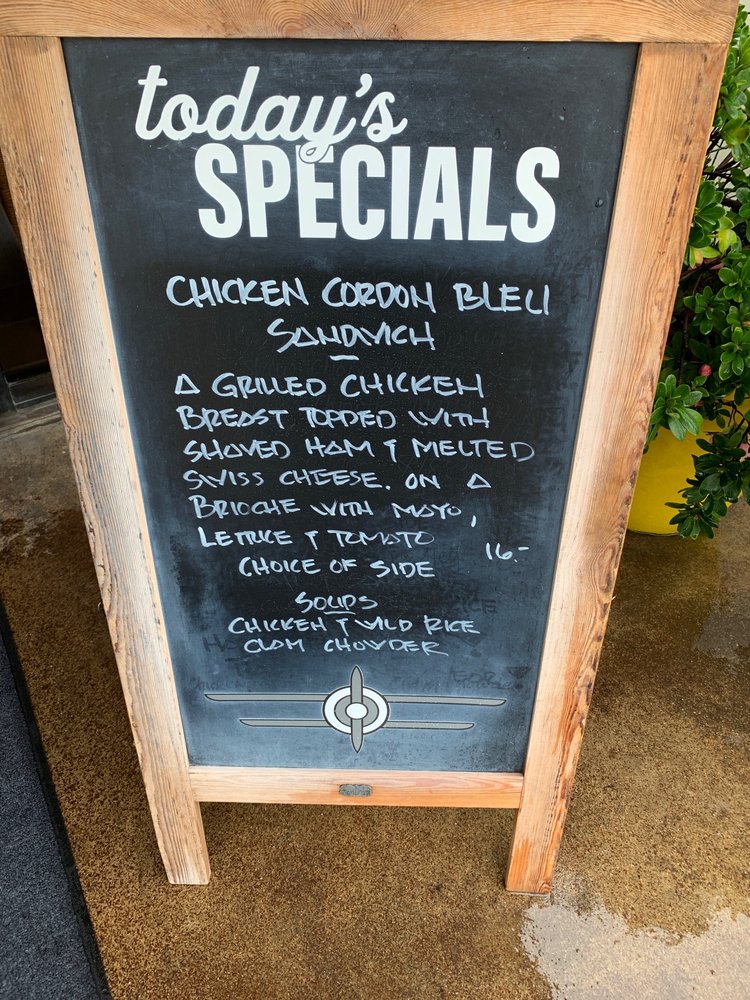 today's
SPECIALS
CHICKEN CORDON BLEU
SANDWICH
A GRILLED CHICKEN
BREAST TOPPED WITH
SHAVED HAM & MELTED
SWISS CHEESE. ON A
BRIOCHE WITH MAYO,
LETTUCE & TOMATO
16.-
CHOICE OF SIDE
SOUPS
CHICKEN & WILD RICE
CLAM CHOWDER